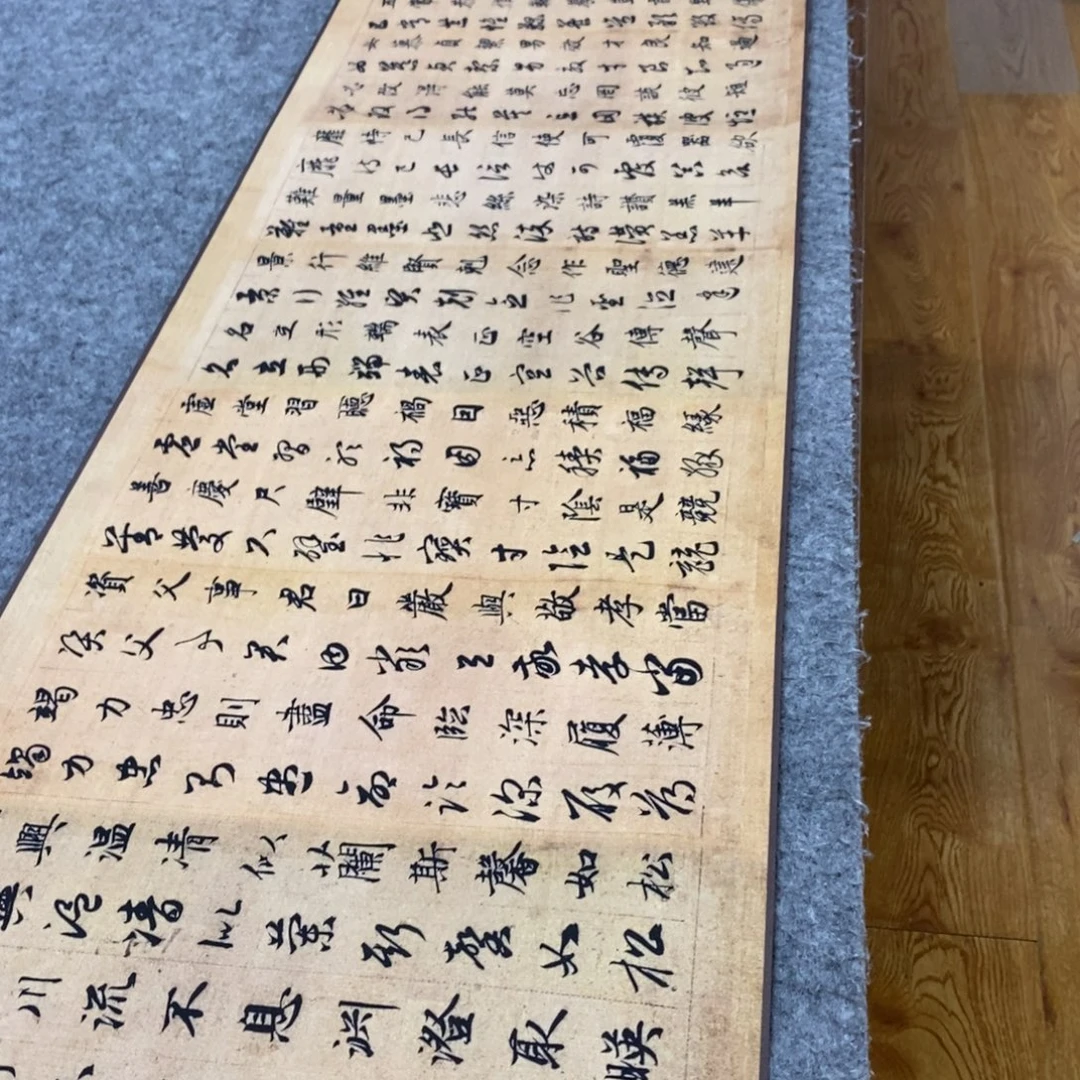 女慕貞絜男效才良知過
女慕貞絜男效才良知過
必改得能莫忘罔談彼短
必改得能莫忘罔談彼短
靡恃己長信使可覆器欲
靡恃己長信使可覆器欲
難量墨悲絲染詩讚羔羊
難量墨悲絲染詩讚羔羊
景行維賢剋念作聖德建
景行維賢剋念作聖德建
名立形端表正空谷傳聲
名立形端表正空谷傳聲
虛堂習聽禍因惡積福緣
虛堂習聽禍因惡積福緣
善慶尺璧非寶寸陰是競
善慶尺璧非寶寸陰是競
資父事君曰嚴與敬孝當
資父事君曰嚴與敬孝當
竭力忠則盡命臨深履薄
竭力忠則盡命臨深履薄
興溫清似蘭斯馨如松
興溫清似蘭斯馨如松
川流不息淵澄取映